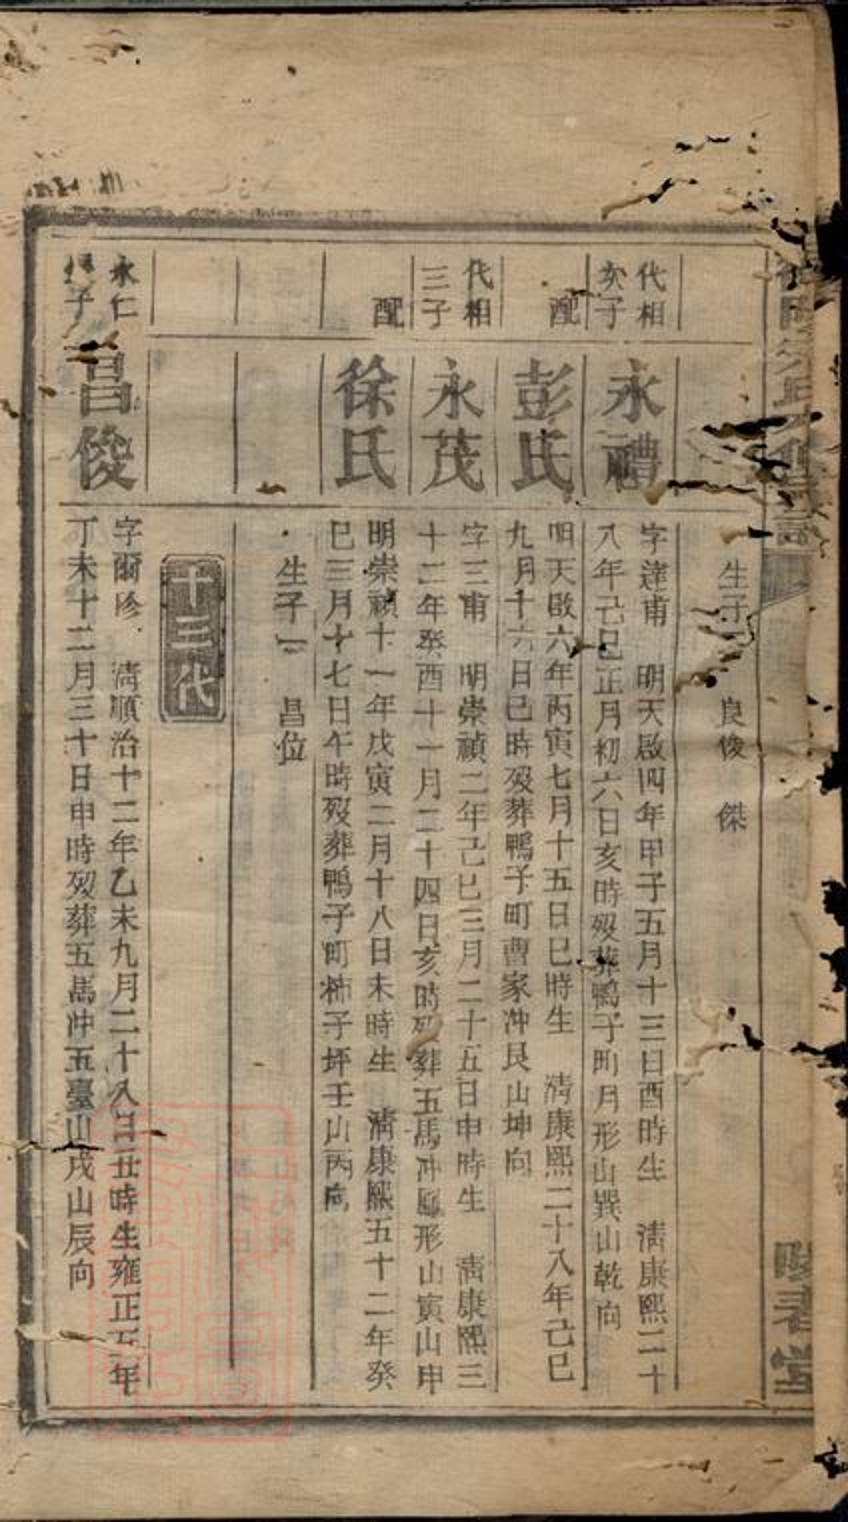 生子二 良俊 傑
代相
次子
永禮
字達甫 明天啟四年甲子五月十三日酉時生 清康熙二十
八年己巳正月初六日亥時歿葬鴨子町月形山巽山乾向
配
彭氏
明天啟六年丙寅七月十五日巳時生 清康熙二十八年己巳
九月十六日巳時歿葬鴨子町曹家冲艮山坤向
代相
三子
永茂
字三甫 明崇禎二年己巳三月二十五日申時生 清康熙三
十二年癸酉十一月二十四日亥時歿葬五馬冲鳳形山寅山申
配
徐氏
明崇禎十一年戊寅二月十八日未時生 清康熙五十二年癸
巳三月十七日午時歿葬鴨子町柿子坪壬山丙向
生子一 昌位
十三代
永仁
子
昌俊
字爾珍 清順治十二年乙未九月二十八日丑時生雍正五年
丁未十二月三十日申時歿葬五馬冲五臺山戌山辰向
堂